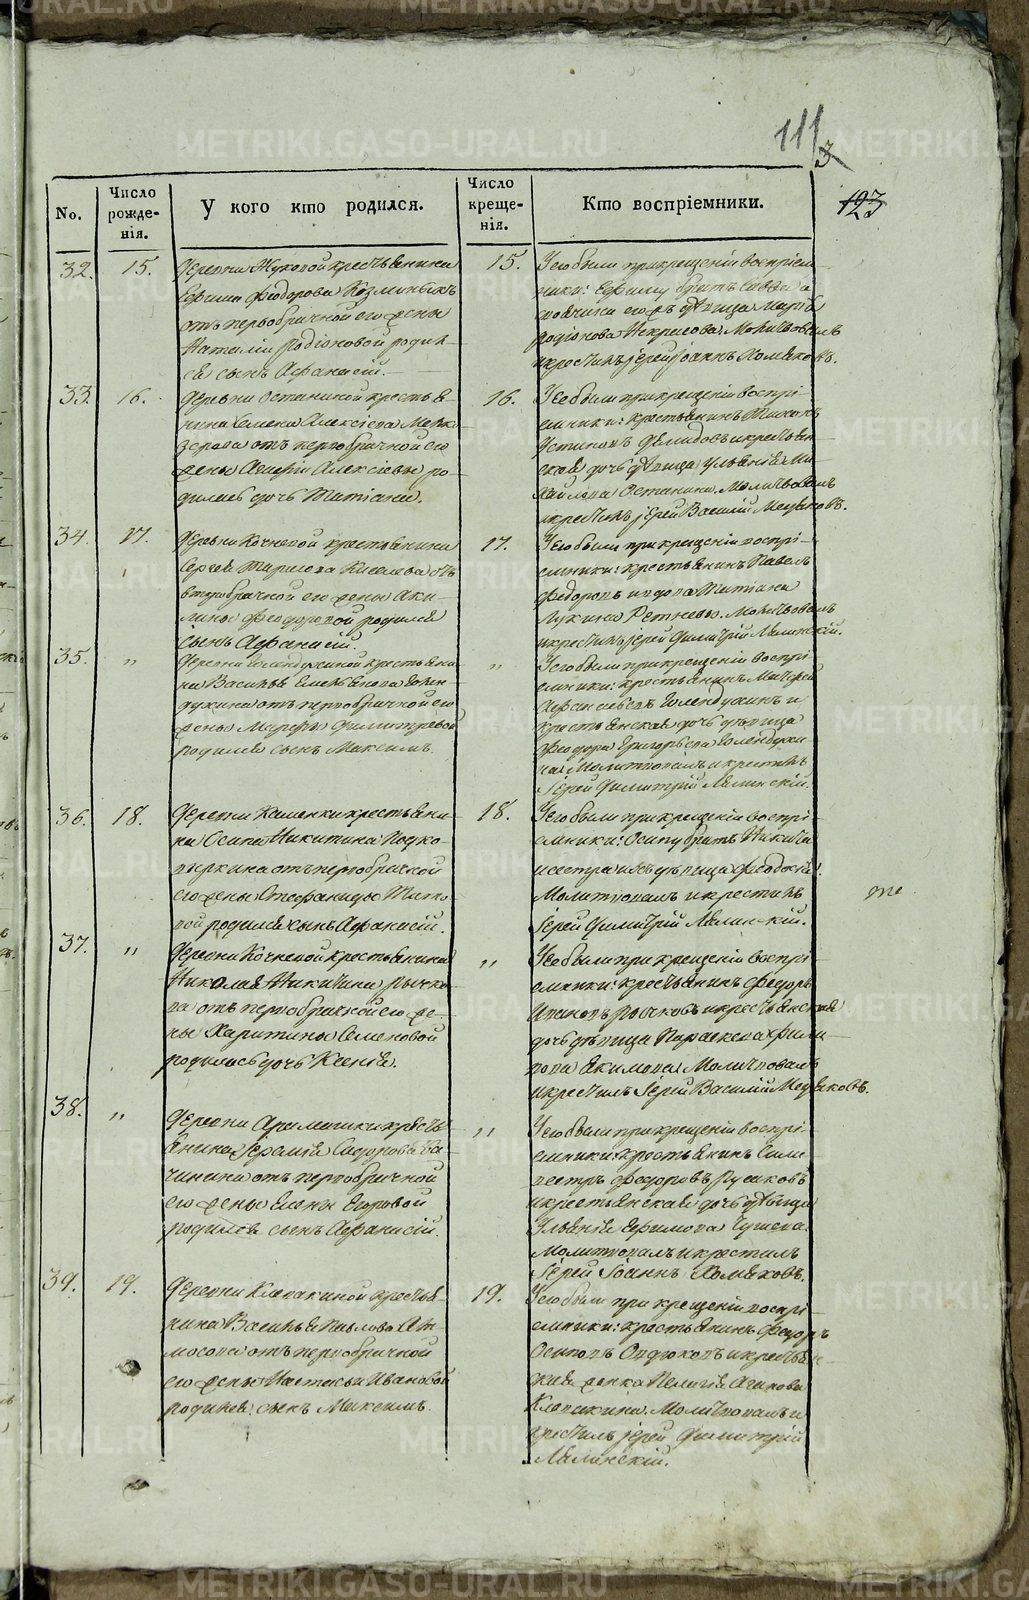 111
3
123
No.
Число рожде-нія.
У кого кто родился.
Число креще-нія.
Кто воспріемники.
32. 15.
Деревни Жуковой крестьянина
Ефима Федорова Козминыхъ
отъ первобрачной его жены
Наталіи Родіоновой родил-
ся сынъ Афанасій.
15.
У сего были при крещеніи воспріем-
ники: Ефиму братъ Савва а
его дѣвица Марія
Родіонова Некрасова. Молитвовалъ
и крестилъ іерей Іоаннъ Хомяковъ.
33. 16.
Деревни Останиной крестья-
нина Семена Алексѣева
отъ первобрачной его
жены Алексѣевы ро-
дилась дочь Татіана.
16.
У сей были при крещеніи воспрі-
емники: крестьянинъ Тихонъ
Устиновъ и крестьян-
ская дочь дѣвица Ульянія Ми-
хайлова Останина. Молитвовалъ
и крестилъ іерей Василій
34. 17.
Деревни Кочневой крестьянина
Сергея Тарасова Киселева отъ
второбрачной его жены Аки-
лины Феодоровой родился
сынъ Афанасій.
17.
У сего были при крещеніи воспрі-
емники: крестьянинъ Павелъ
Федоровъ и вдова Татіана
Лукина Молитвовалъ
и крестилъ іерей Димитрій Лялинскій.
35. "
Деревни Голендухиной крестьяни-
на Василья Емельянова Голен-
духина отъ первобрачной его
жены Марфы Димитріевой
родился сынъ Максимъ.
"
У сего были при крещеніи воспрі-
емники: крестьянинъ
Голендухинъ и
крестьянская дочь дѣвица
Феодора Григорьева Голендухи-
на Молитвовалъ и крестилъ
Іерей Димитрій Лялинскій.
36. 18.
Деревни Каменки крестьяни-
на Осипа Никитина Подко-
рыткина отъ первобрачной
его жены Стефаниды Тито-
вой родился сынъ Афанасій.
18.
У сего были при крещеніи воспрі-
емники: Осипу братъ Никита
и сестра ихъ дѣвица Феодосія.
Молитвовалъ и крестилъ
Іерей Димитрій Лялинскій.
37. "
Деревни Кочневой крестьянина
Николая Никитина Рычко-
ва отъ первобрачной его же-
ны Харитины Семеновой
родилась дочь Ксенія.
"
У сей были при крещеніи воспрі-
емники: крестьянинъ Федоръ
Рычковъ и крестьянская
дочь дѣвица Параскева Фили-
пова Екимова. Молитвовалъ
и крестилъ Іерей Василій
38. "
Деревни Арамашки кресть-
янина Іереміи Сидорова
отъ первобрачной
его жены Елены Егоровой
родился сынъ Афанасій.
"
У сего были при крещеніи воспрі-
емники: крестьянинъ Силь-
вестръ Федоровъ Русаковъ
и крестьянская дочь дѣвица
Ульянія Ефимова
Молитвовалъ и крестилъ
Іерей Іоаннъ Хомяковъ.
39. 19.
Деревни Клевакиной крестья-
нина Василья Павлова
отъ первобрачной
его жены Настасьи Ивановой
родился сынъ Максимъ.
19.
У сего были при крещеніи воспрі-
емники: крестьянинъ Федоръ
Осиповъ и крестьян-
ская женка Пелагія
Клевакина. Молитвовалъ и
крестилъ іерей Димитрій
Лялинскій.
METRIKI.GASO-URAL.RU